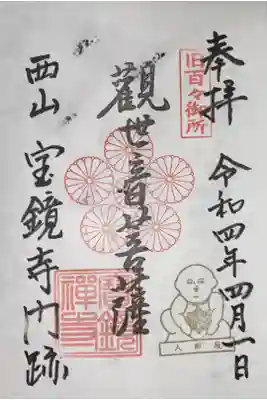 奉拝
令和四年四月一日
旧百々御所
觀世音菩薩
西山 宝鏡寺門跡
寳鏡禅寺
人形塚